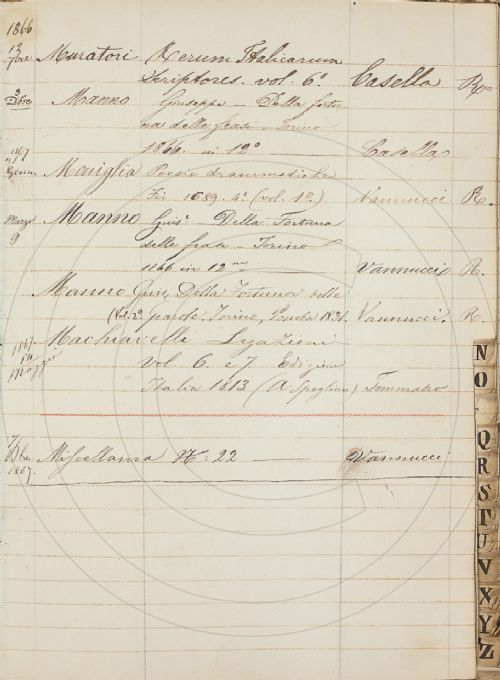 1866
12 7bre Muratori Rerum Italicarum
Scriptores. vol. 6º. Casella R.
3 Xbre Manno Giuseppe - Della fortu-
na delle frasi - Torino
1866. in 12º Casella
1867 Genn. Maniglia Poesie drammatiche
Fir. 1689. 4º. (vol. 1º.) Vannucci R.
Marzo 9 Manno Guis. - Della Fortuna
delle frasi - Torino
1866 in 12mo Vannucci R.
Manno Gius. Della Fortuna delle
parole. Torino, Pomba 1831. Vannucci. R.
1867. 14 Maggio Machiavelli Legazioni
vol. 6. e 7. Edizione
Italia 1813 (A Spogliare) Tommaseo
7 1867. Miscellanea Nº: 22 Vannucci
N
O
Q
R
S
T
U
V
X
Y
Z